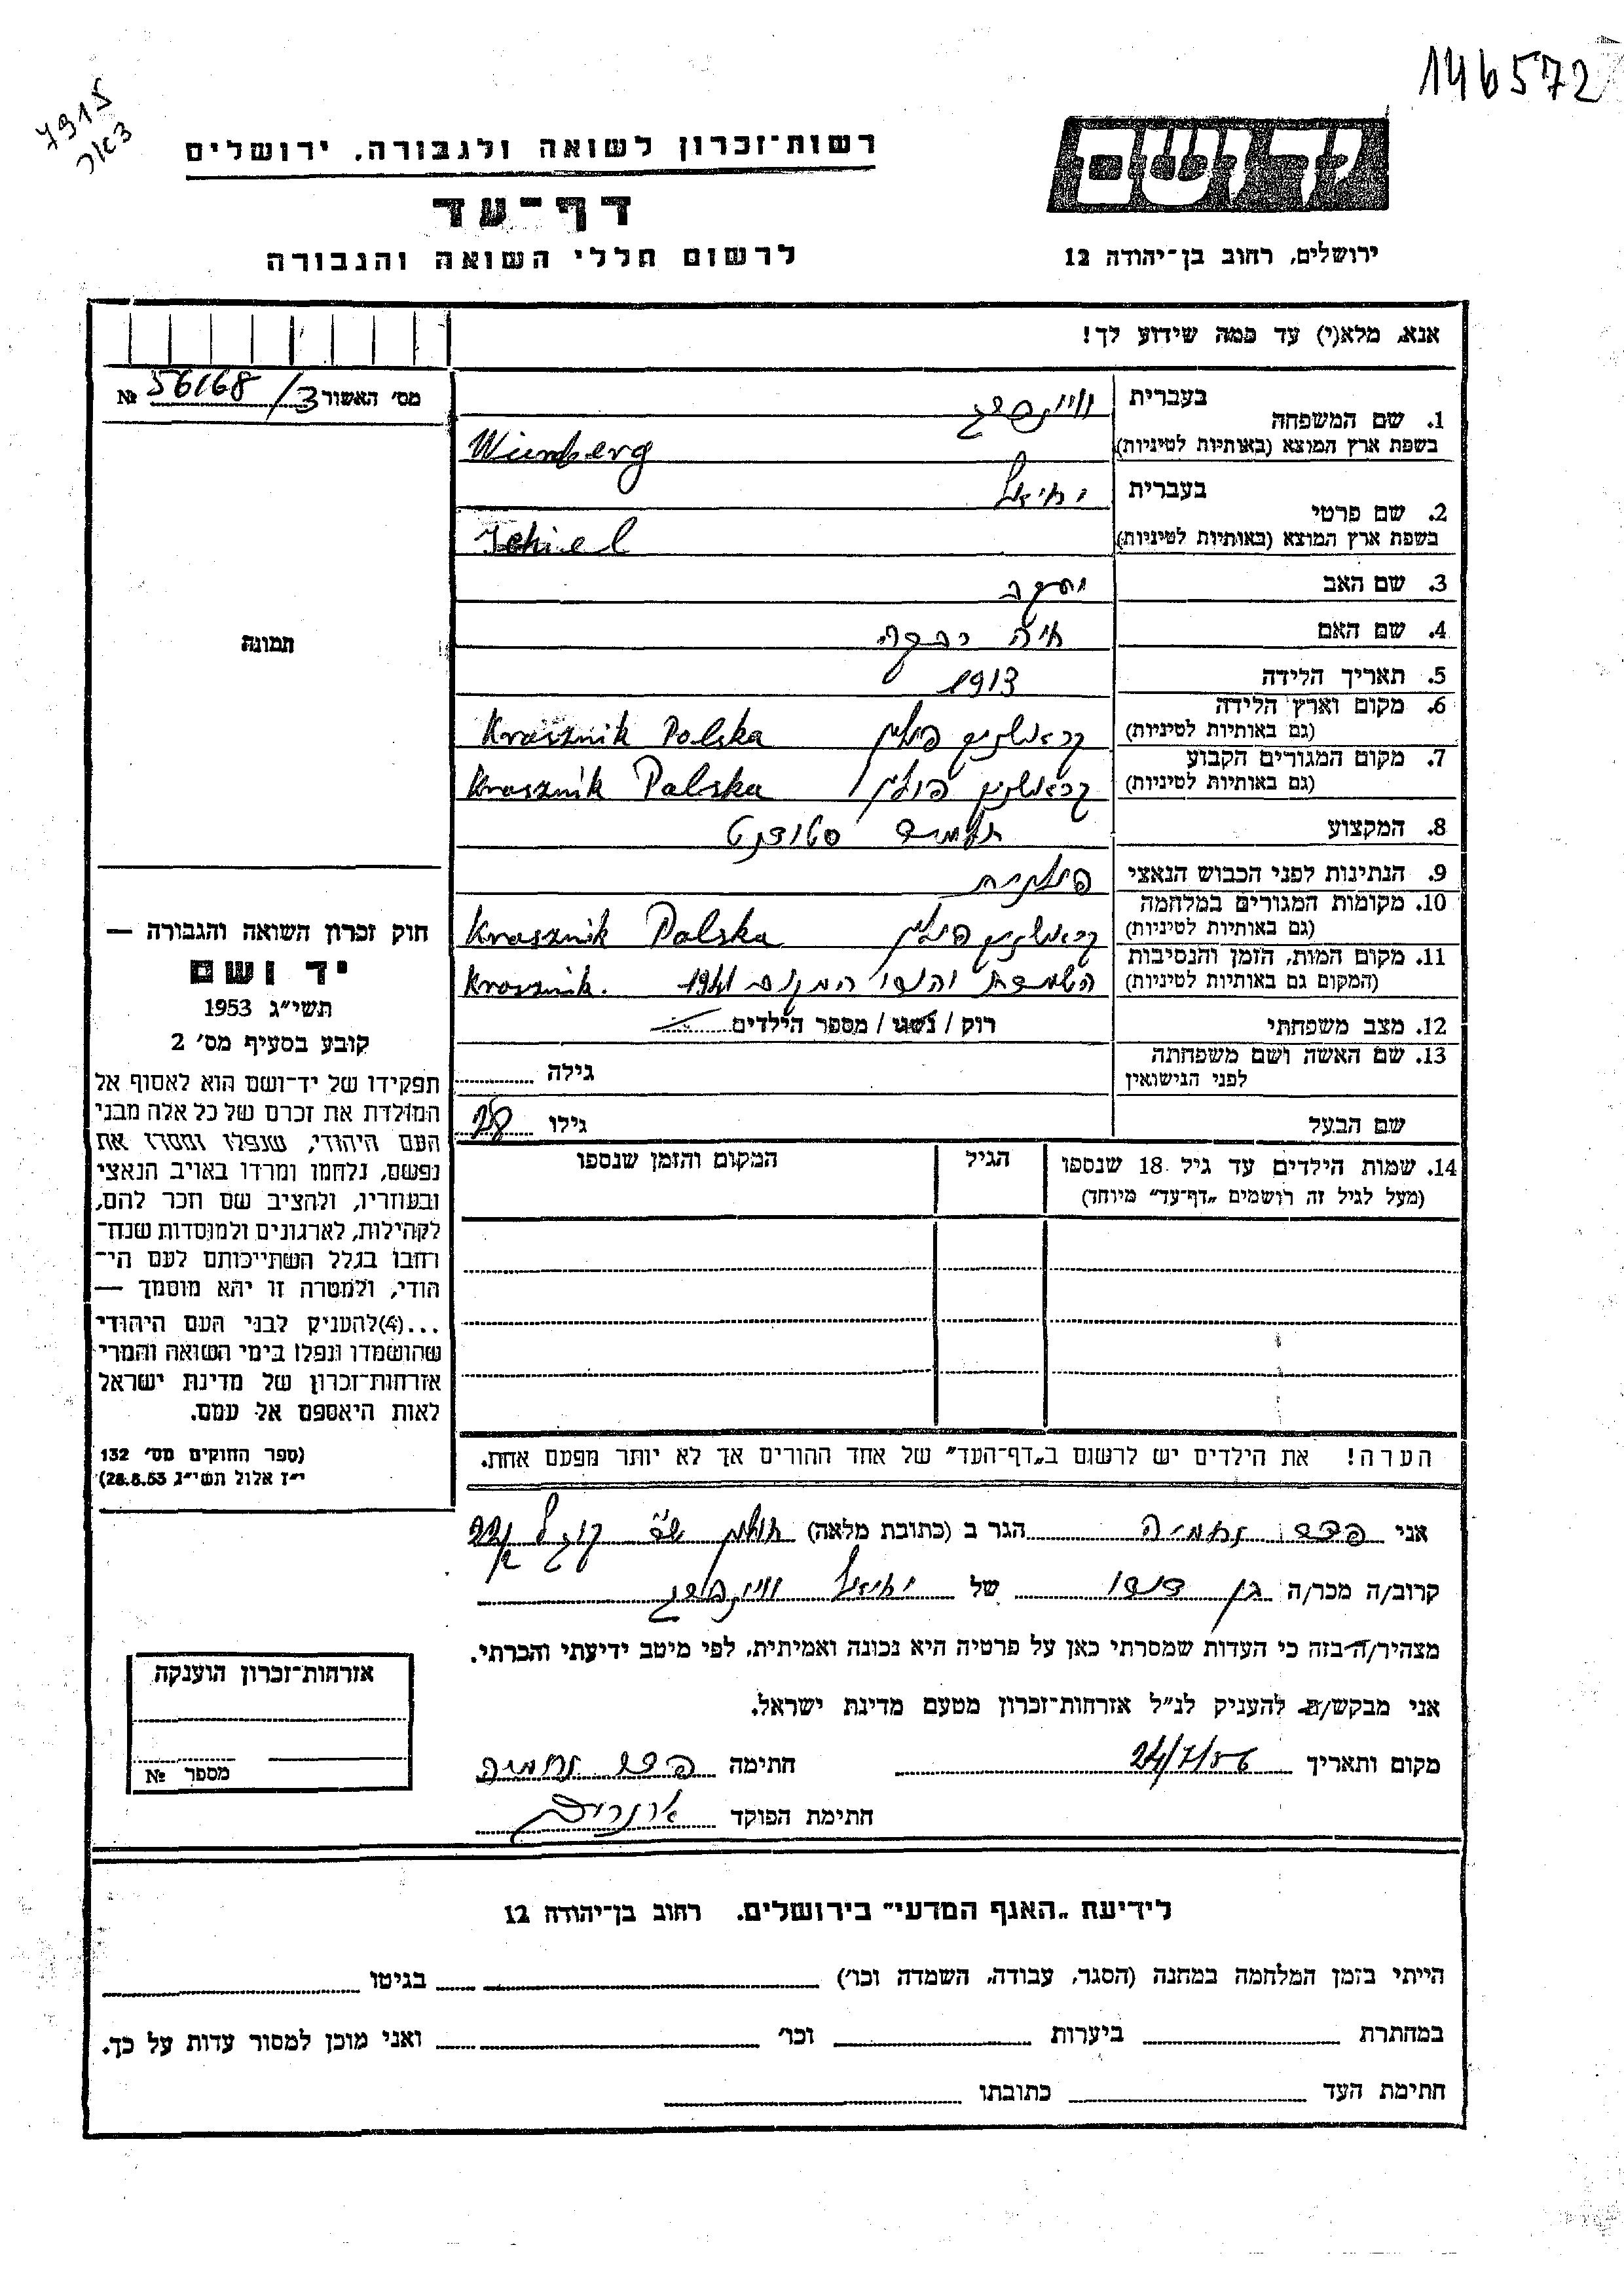 146572
7915
רשות־זכרון לשואה ולגבורה, ירושלים
דף־עד
לרשום חללי השואה והגבורה
יד ושם
ירושלים, רחוב בן־יהודה 12
אנא, מלא(י) עד כמה שידוע לך!
מס' האשור 56168/3 №
1. שם המשפחה
בעברית ווינברג
בשפת ארץ המוצא (באותיות לטיניות) Weinberg
2. שם פרטי
בעברית יחיאל
בשפת ארץ המוצא (באותיות לטיניות) Jehiel
3. שם האב יעקב
4. שם האם חיה רבקה
5. תאריך הלידה 1913
6. מקום וארץ הלידה קראשניק פולין Krasznik Polska
(גם באותיות לטיניות)
7. מקום המגורים הקבוע קראשניק פולין Krasznik Polska
(גם באותיות לטיניות)
8. המקצוע תלמיד סטודנט
9. הנתינות לפני הכבוש הנאצי פולנית
10. מקומות המגורים במלחמה קראשניק פולין Krasznik Polska
(גם באותיות לטיניות)
11. מקום המות, הזמן והנסיבות 1941 Krasznik.
(המקום גם באותיות לטיניות)
12. מצב משפחתי רוק / נשוי / מספר הילדים
13. שם האשה ושם משפחתה
לפני הנישואין
גילה
שם הבעל
גילו 28
14. שמות הילדים עד גיל 18 שנספו
(מעל לגיל זה רושמים „דף־עד" מיוחד)
הגיל
המקום והזמן שנספו
תמונה
חוק זכרון השואה והגבורה —
יד ושם
תשי"ג 1953
קובע בסעיף מס' 2
תפקידו של יד־ושם הוא לאסוף אל
המולדת את זכרם של כל אלה מבני
העם היהודי, שנפלו ומסרו את
נפשם, נלחמו ומרדו באויב הנאצי
ובעוזריו, ולהציב שם וזכר להם,
לקהילות, לארגונים ולמוסדות שנח־
רבו בגלל השתייכותם לעם הי־
הודי, ולמטרה זו יהא מוסמך —
...(4)להעניק לבני העם היהודי
שהושמדו ונפלו בימי השואה והמרי
אזרחות־זכרון של מדינת ישראל
לאות היאספם אל עמם.
(ספר החוקים מס' 132
י"ז אלול תשי"ג 28.8.53)
הערה! את הילדים יש לרשום ב„דף־העד" של אחד ההורים אך לא יותר מפעם אחת.
אני נחמיה הגר ב (כתובת מלאה) חולון
קרוב/ה מכר/ה בן דודו של יחיאל ווינברג
מצהיר/ה בזה כי העדות שמסרתי כאן על פרטיה היא נכונה ואמיתית, לפי מיטב ידיעתי והכרתי.
אני מבקש/ת להעניק לנ"ל אזרחות־זכרון מטעם מדינת ישראל.
מקום ותאריך 24/7/56 חתימה נחמיה
חתימת הפוקד
אזרחות־זכרון הוענקה
מספר №
לידיעת „האגף המדעי" בירושלים. רחוב בן־יהודה 12
הייתי בזמן המלחמה במחנה (הסגר, עבודה, השמדה וכו') בגיטו
במחתרת ביערות וכו' ואני מוכן למסור עדות על כך.
חתימת העד כתובתו